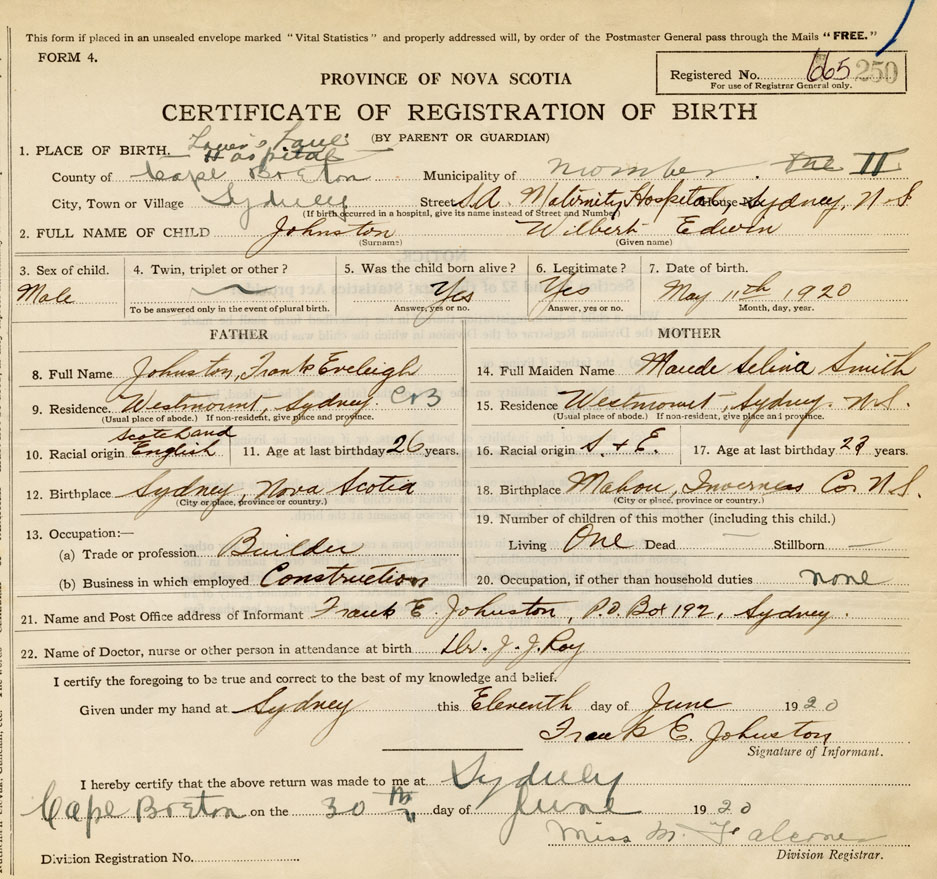 This form if placed in an unsealed envelope marked "Vital Statistics" and properly addressed will, by order of the Postmaster General pass through the Mails "FREE."
FORM 4.
Registered No. 665 250
For use of Registrar General only.
PROVINCE OF NOVA SCOTIA
CERTIFICATE OF REGISTRATION OF BIRTH
(BY PARENT OR GUARDIAN)
1. PLACE OF BIRTH. Hospital
County of Cape Breton Municipality of number The II
City, Town or Village Sydney Street S.A. Maternity Hospital, House No. Sydney, N.S
(If birth occurred in a hospital, give its name instead of Street and Number)
2. FULL NAME OF CHILD Johnston Wilbert Edwin
(Surname) (Given name)
3. Sex of child. 4. Twin, triplet or other? 5. Was the child born alive? 6. Legitimate? 7. Date of birth.
Male Yes Yes May 11th 1920
To be answered only in the event of plural birth. Answer, yes or no. Answer, yes or no. Month, day, year.
FATHER
8. Full Name Johnston, Frank Eveleigh
9. Residence. Westmount, Sydney CB
(Usual place of abode.) If non-resident, give place and province.
Scotch and
10. Racial origin English 11. Age at last birthday 26 years.
12. Birthplace Sydney, Nova Scotia
(City or place, province or country.)
13. Occupation:—
(a) Trade or profession Builder
(b) Business in which employed Construction
MOTHER
14. Full Maiden Name Maude Selina Smith
15. Residence Westmount, Sydney. N.S.
(Usual place of abode.) If non-resident, give place and province.
16. Racial origin S. + E. 17. Age at last birthday years.
18. Birthplace Mabou, Inverness Co. N.S.
(City or place, province or country.)
19. Number of children of this mother (including this child.)
Living One Dead — Stillborn —
20. Occupation, if other than household duties none
21. Name and Post Office address of Informant Frank E. Johnston, P.O. Box 192, Sydney.
22. Name of Doctor, nurse or other person in attendance at birth Dr. J. J. Roy
I certify the foregoing to be true and correct to the best of my knowledge and belief.
Given under my hand at Sydney this Eleventh day of June 1920
Frank E. Johnston
Signature of Informant.
I hereby certify that the above return was made to me at Sydney
Cape Breton on the 30th day of June 1920
Miss M. Falconer
Division Registration No.
Division Registrar.